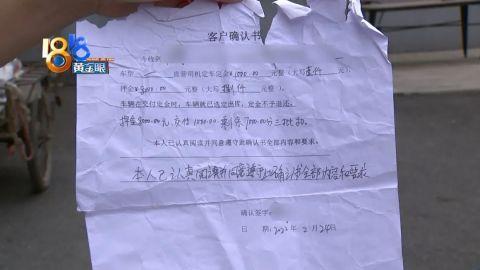 1818
黄金眼
客户确认书
今收到
车型 一 直营司机定车定金￥1000.00 元整（大写壹仟 元）
押金￥8000.00元整（大写捌仟 元整）
车辆在交付定金时，车辆就已选定出库，定金不予退还。
押金8000.00元，交付1000.00 剩余7000.00分三批扣.
本人已认真阅读并同意遵守此确认书全部内容和要求。
本人已认真阅读并同意遵守此确认书全部内容和要求
确认签字：
日 期：202 年2月24日